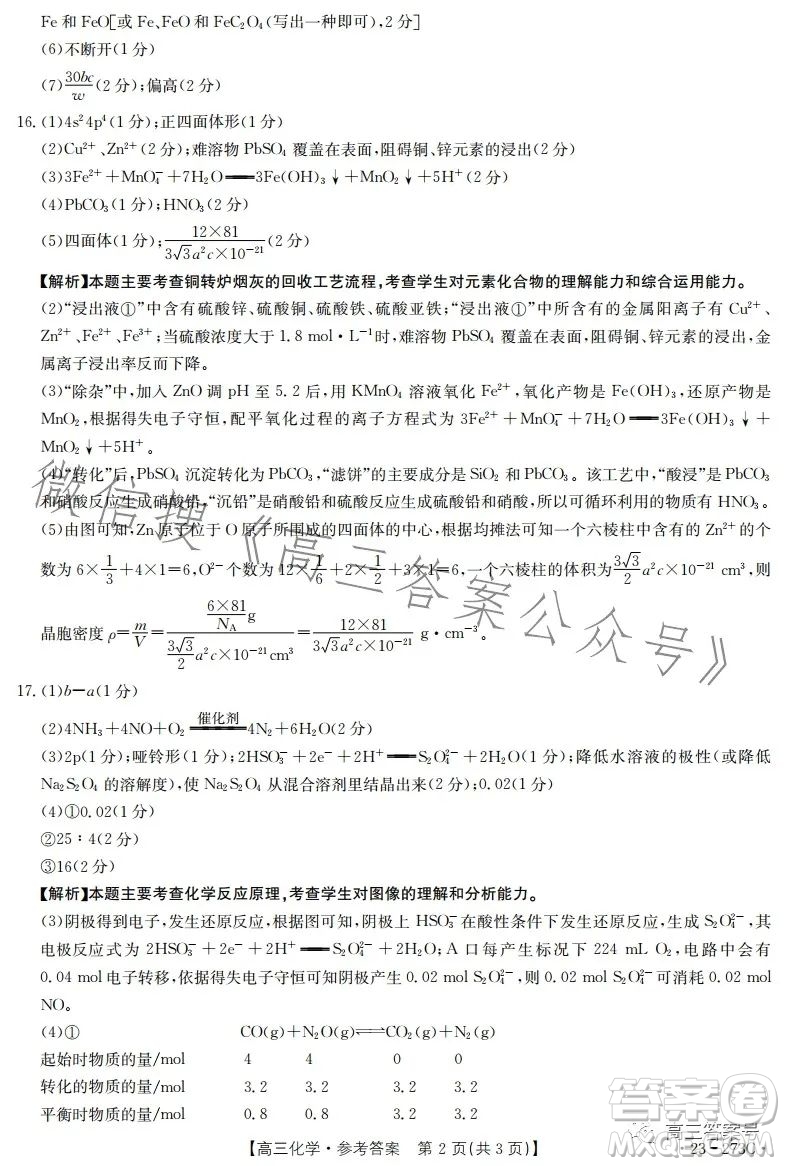 Fe 和 FeO[或 Fe、FeO 和 FeC₂O₄(写出一种即可),2 分]
(6)不断开(1 分)
(7)30bc/w(2 分);偏高(2 分)
16.(1)4s²4p⁴(1 分);正四面体形(1 分)
(2)Cu²⁺、Zn²⁺(2 分);难溶物 PbSO₄ 覆盖在表面,阻碍铜、锌元素的浸出(2 分)
(3)3Fe²⁺+MnO₄⁻+7H₂O══3Fe(OH)₃↓+MnO₂↓+5H⁺(2 分)
(4)PbCO₃(1 分);HNO₃(2 分)
(5)四面体(1 分);12×81/(3√3a²c×10⁻²¹)(2 分)
【解析】本题主要考查铜转炉烟灰的回收工艺流程,考查学生对元素化合物的理解能力和综合运用能力。
(2)“浸出液①”中含有硫酸锌、硫酸铜、硫酸铁、硫酸亚铁;“浸出液①”中所含有的金属阳离子有 Cu²⁺、
Zn²⁺、Fe²⁺、Fe³⁺;当硫酸浓度大于 1.8 mol·L⁻¹时,难溶物 PbSO₄ 覆盖在表面,阻碍铜、锌元素的浸出,金
属离子浸出率反而下降。
(3)“除杂”中,加入 ZnO 调 pH 至 5.2 后,用 KMnO₄ 溶液氧化 Fe²⁺,氧化产物是 Fe(OH)₃,还原产物是
MnO₂,根据得失电子守恒,配平氧化过程的离子方程式为 3Fe²⁺+MnO₄⁻+7H₂O══3Fe(OH)₃↓+
MnO₂↓+5H⁺。
(4)“转化”后,PbSO₄ 沉淀转化为 PbCO₃,“滤饼”的主要成分是 SiO₂ 和 PbCO₃。该工艺中,“酸浸”是 PbCO₃
和硝酸反应生成硝酸铅,“沉铅”是硝酸铅和硫酸反应生成硫酸铅和硝酸,所以可循环利用的物质有 HNO₃。
(5)由图可知,Zn 原子位于 O 原子所围成的四面体的中心,根据均摊法可知一个六棱柱中含有的 Zn²⁺的个
数为 6×1/3+4×1=6,O²⁻个数为 12×1/6+2×1/2+3×1=6,一个六棱柱的体积为 3√3/2 a²c×10⁻²¹ cm³,则
晶胞密度 ρ=m/V=(6×81/N_A g)/(3√3/2 a²c×10⁻²¹cm³)=12×81/(3√3a²c×10⁻²¹) g·cm⁻³。
17.(1)b−a(1 分)
(2)4NH₃+4NO+O₂══催化剂══4N₂+6H₂O(2 分)
(3)2p(1 分);哑铃形(1 分);2HSO₃⁻+2e⁻+2H⁺══S₂O₄²⁻+2H₂O(1 分);降低水溶液的极性(或降低
Na₂S₂O₄ 的溶解度),使 Na₂S₂O₄ 从混合溶剂里结晶出来(2 分);0.02(1 分)
(4)①0.02(1 分)
②25∶4(2 分)
③16(2 分)
【解析】本题主要考查化学反应原理,考查学生对图像的理解和分析能力。
(3)阴极得到电子,发生还原反应,根据图可知,阴极上 HSO₃⁻在酸性条件下发生还原反应,生成 S₂O₄²⁻,其
电极反应式为 2HSO₃⁻+2e⁻+2H⁺══S₂O₄²⁻+2H₂O;A 口每产生标况下 224 mL O₂,电路中会有
0.04 mol 电子转移,依据得失电子守恒可知阴极产生 0.02 mol S₂O₄²⁻,则 0.02 mol S₂O₄²⁻可消耗 0.02 mol
NO。
(4)① CO(g)+N₂O(g)⇌CO₂(g)+N₂(g)
起始时物质的量/mol 4 4 0 0
转化的物质的量/mol 3.2 3.2 3.2 3.2
平衡时物质的量/mol 0.8 0.8 3.2 3.2
【高三化学·参考答案 第 2 页(共 3 页)】
·23−273C·
微信搜《高三答案公众号》
高三答案号
答案圈
MXQE.COM